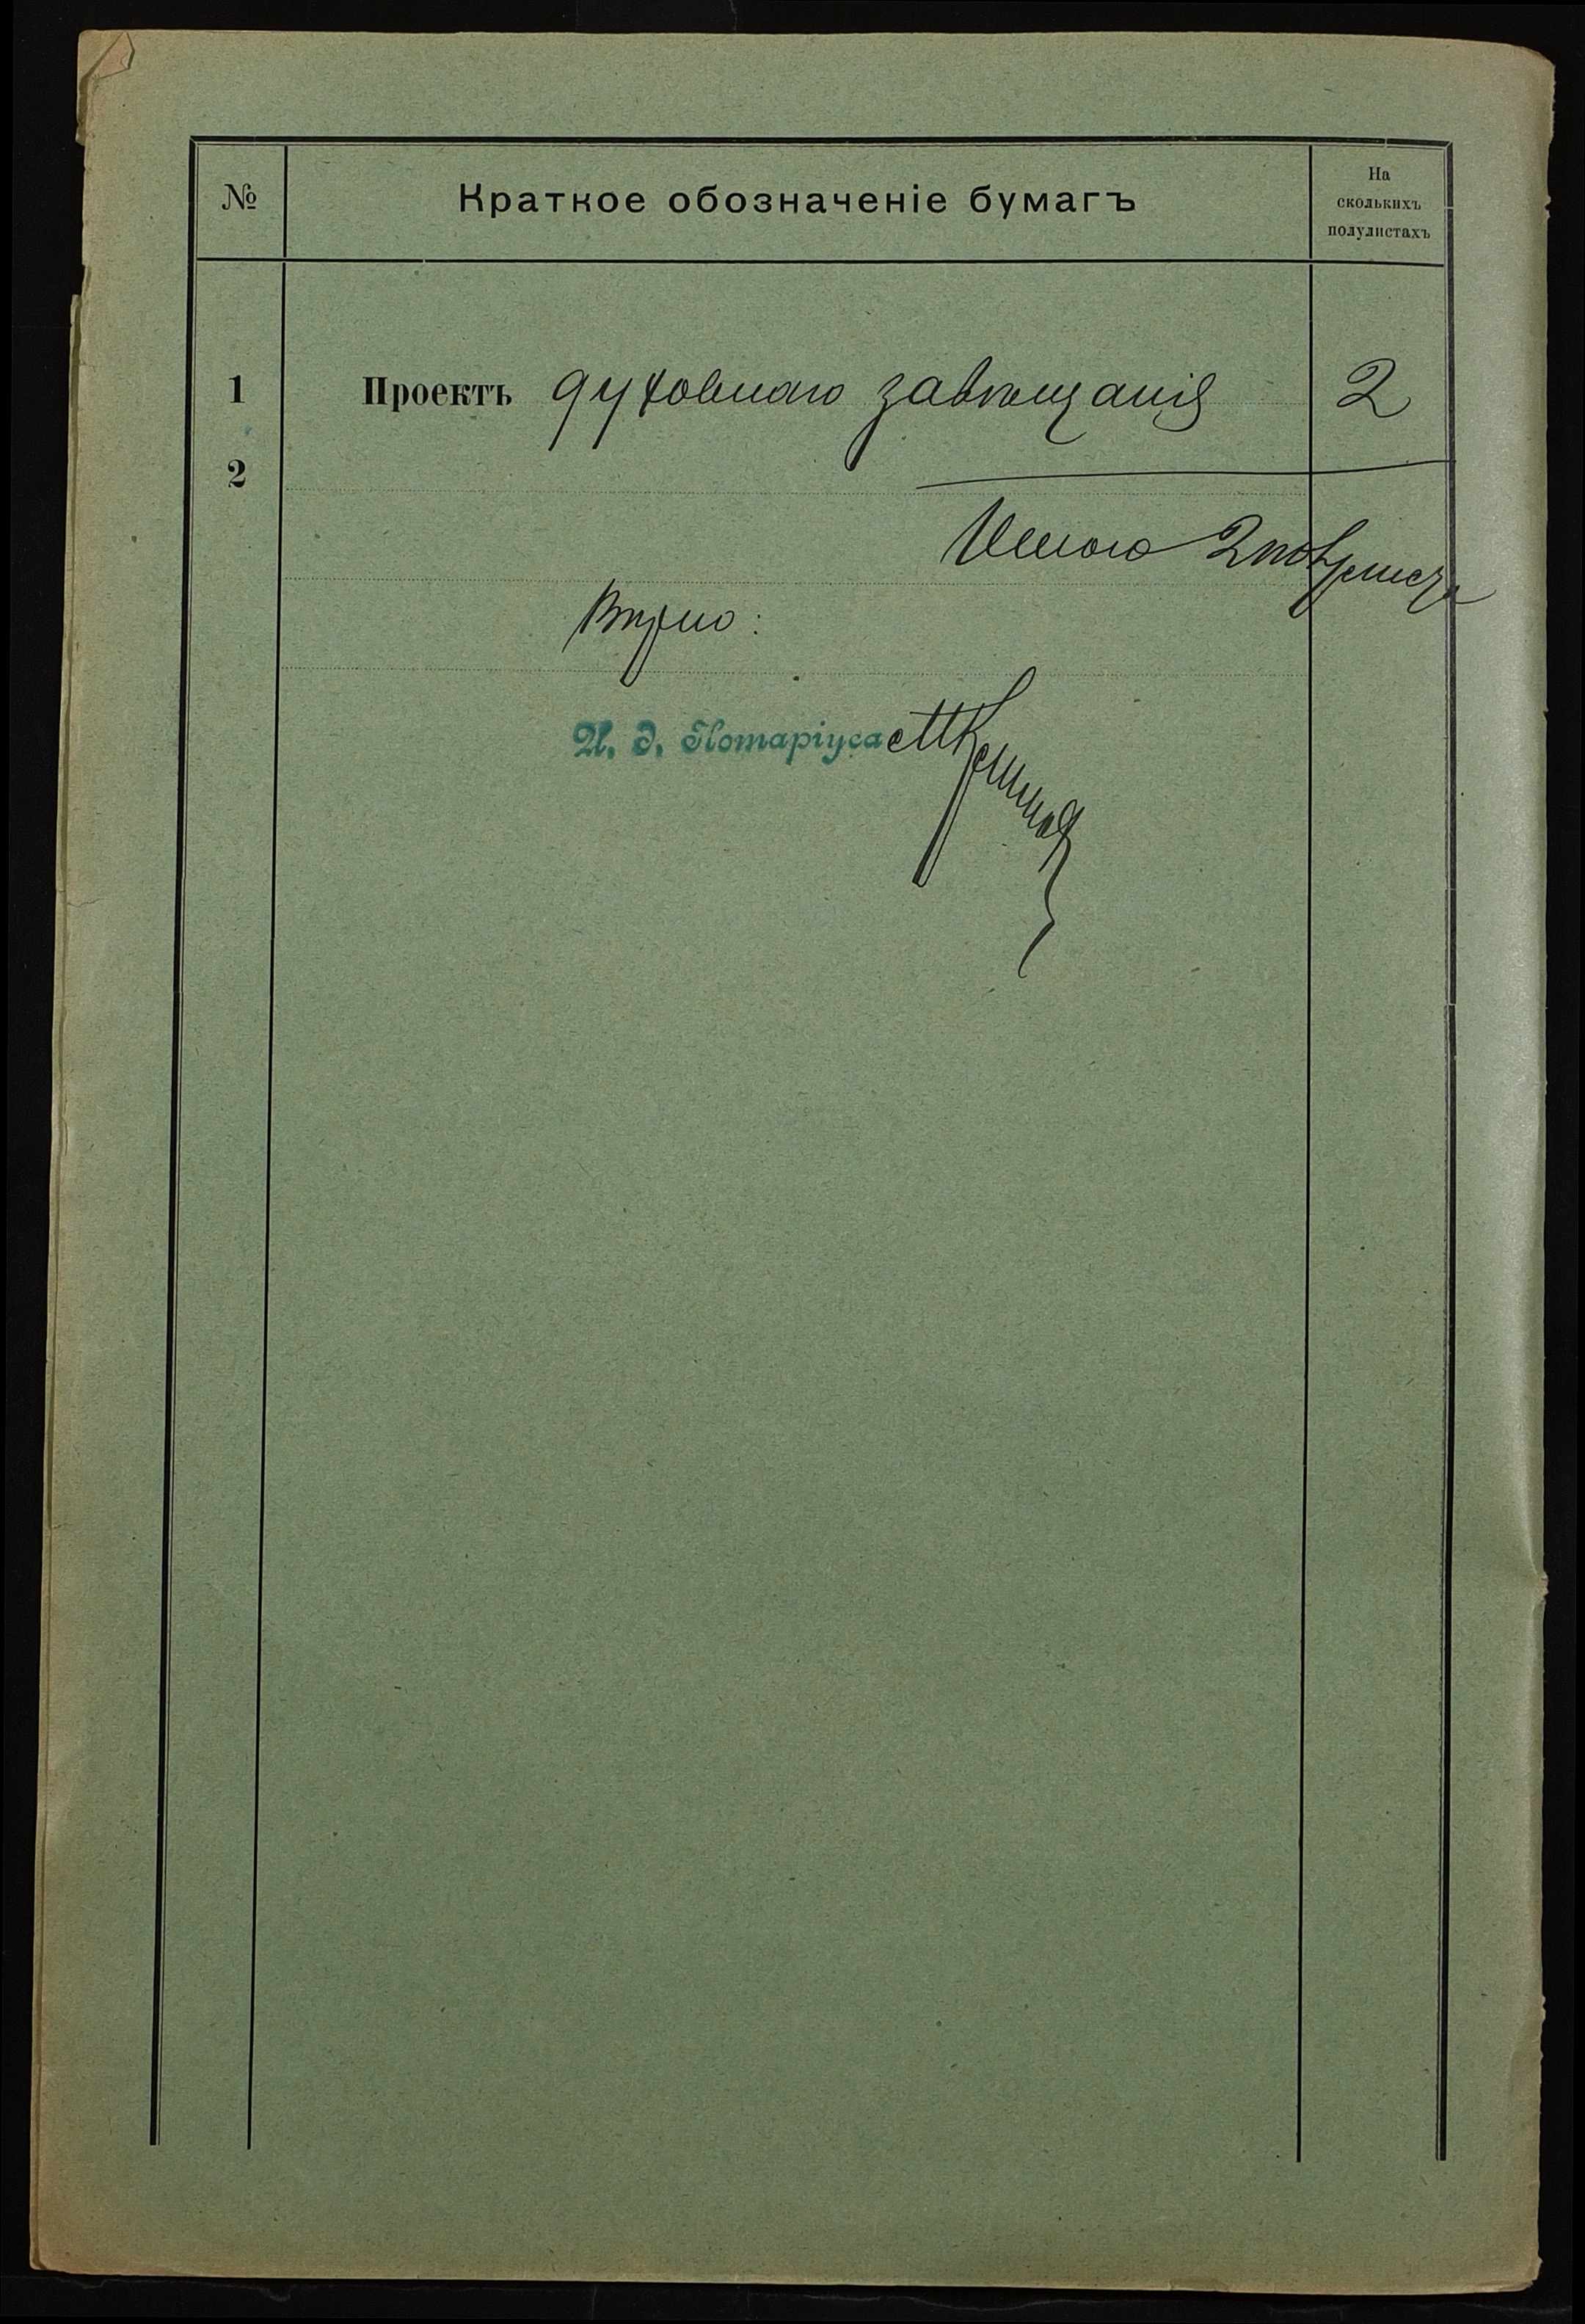 № Краткое обозначеніе бумагъ На
сколькихъ
полулистахъ
1 Проектъ духовнаго завѣщанія 2
2
Итого 2
Вѣрно:
И. д. Нотаріуса